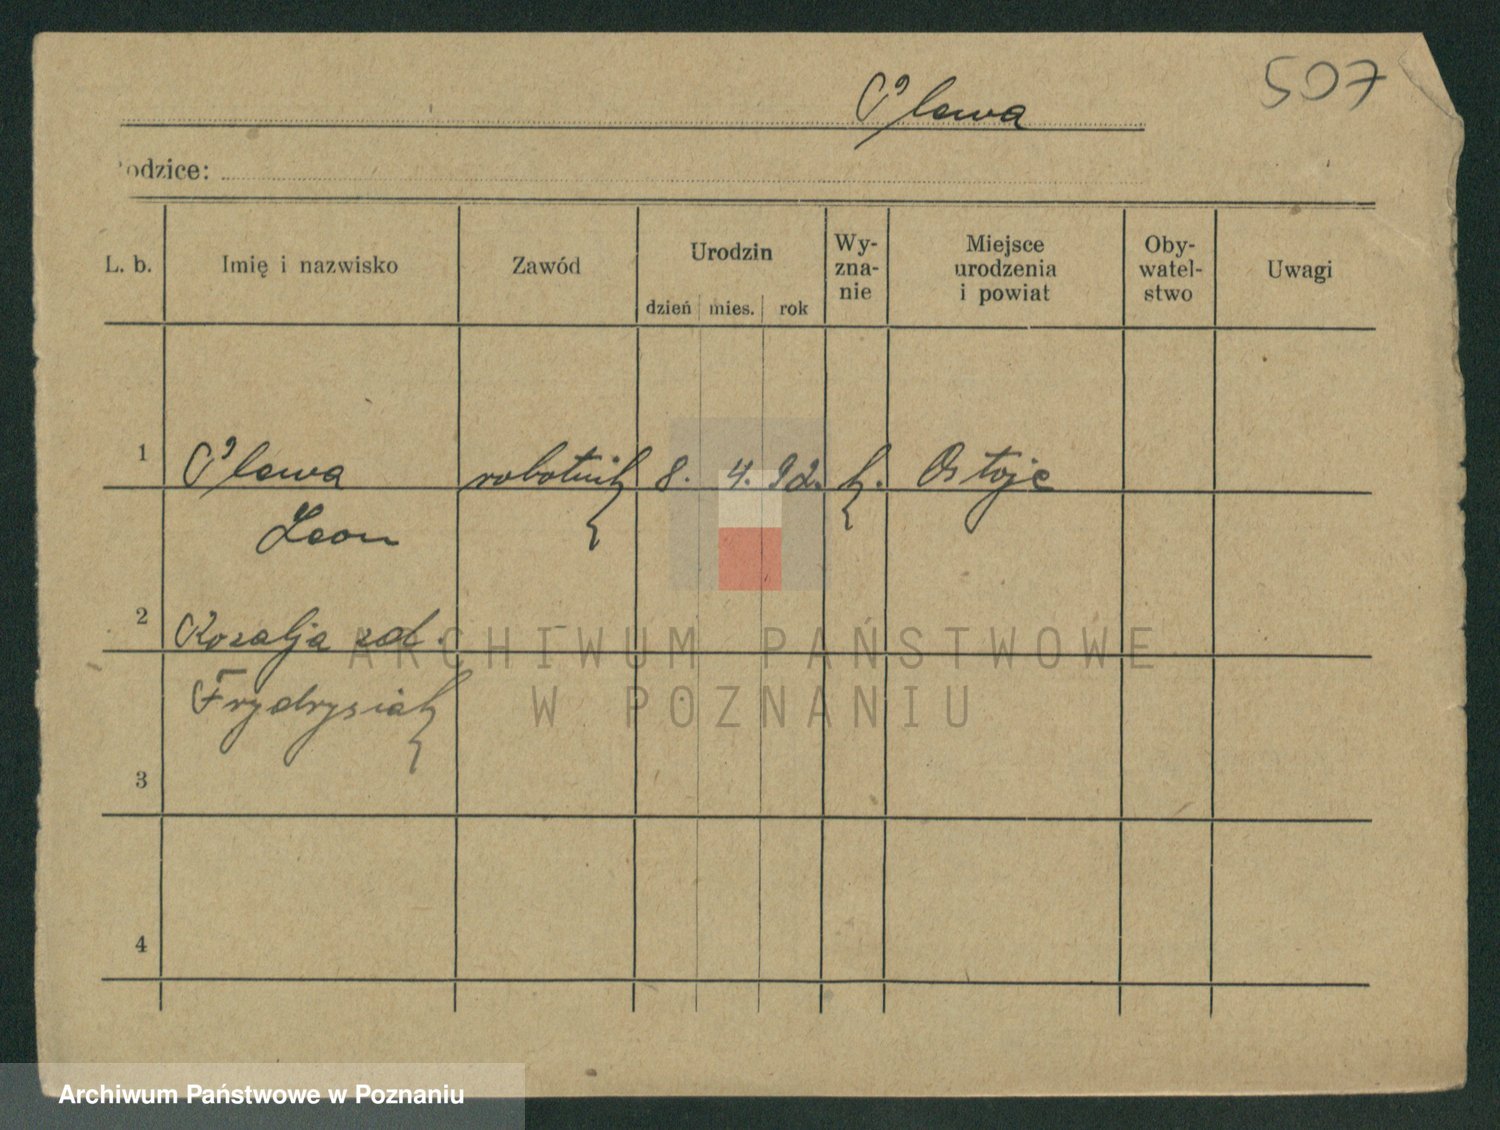 507
Plewa
odzice:
L. b. Imię i nazwisko Zawód Urodzin Wy-zna-nie Miejsce urodzenia i powiat Oby-watel-stwo Uwagi
dzień mies. rok
1 Plewa robotnik 8. 4. 92. k. Ostoje
Leon
2 Rozalja zd.
Frydrysiak
3
4
ARCHIWUM PAŃSTWOWE
W POZNANIU
Archiwum Państwowe w Poznaniu